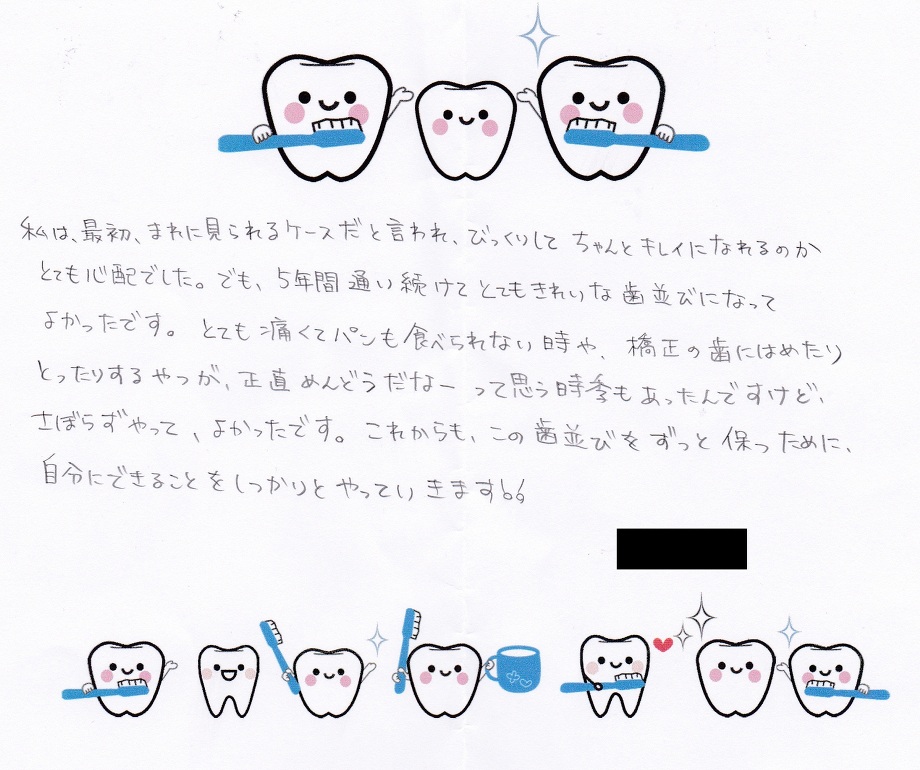 私は、最初、まれに見られるケースだと言われ、びっくりして ちゃんとキレイになれるのか
とても心配でした。でも、5年間通い続けてとてもきれいな歯並びになって
よかったです。とても痛くてパンも食べられない時や、橋正の歯にはめたり
とったりするやつが、正直めんどうだなーって思う時季もあったんですけど、
さぼらずやって、よかったです。これからも、この歯並びをずっと保つために、
自分にできることをしっかりとやっていきます!!